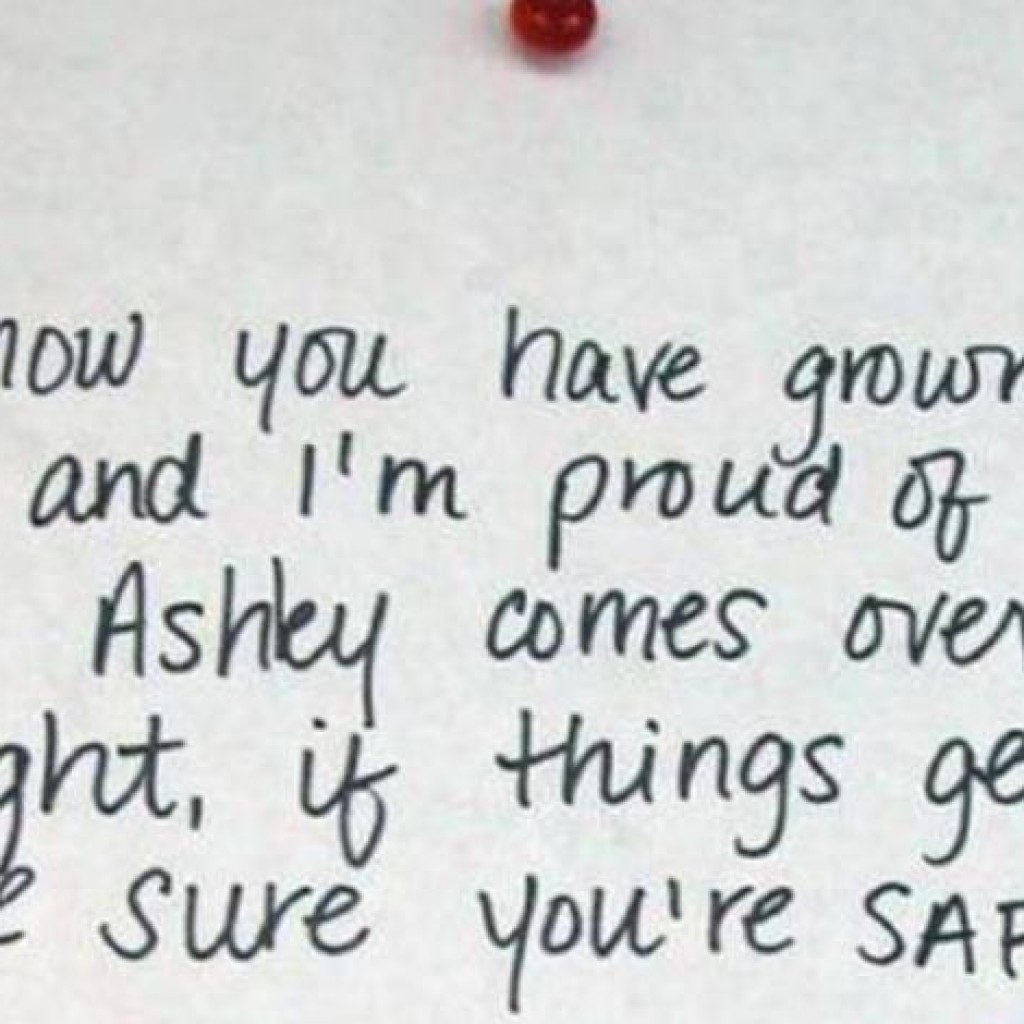 now you have grown
and I'm proud of
Ashley comes over
ght, if things ge
e sure you're SAF